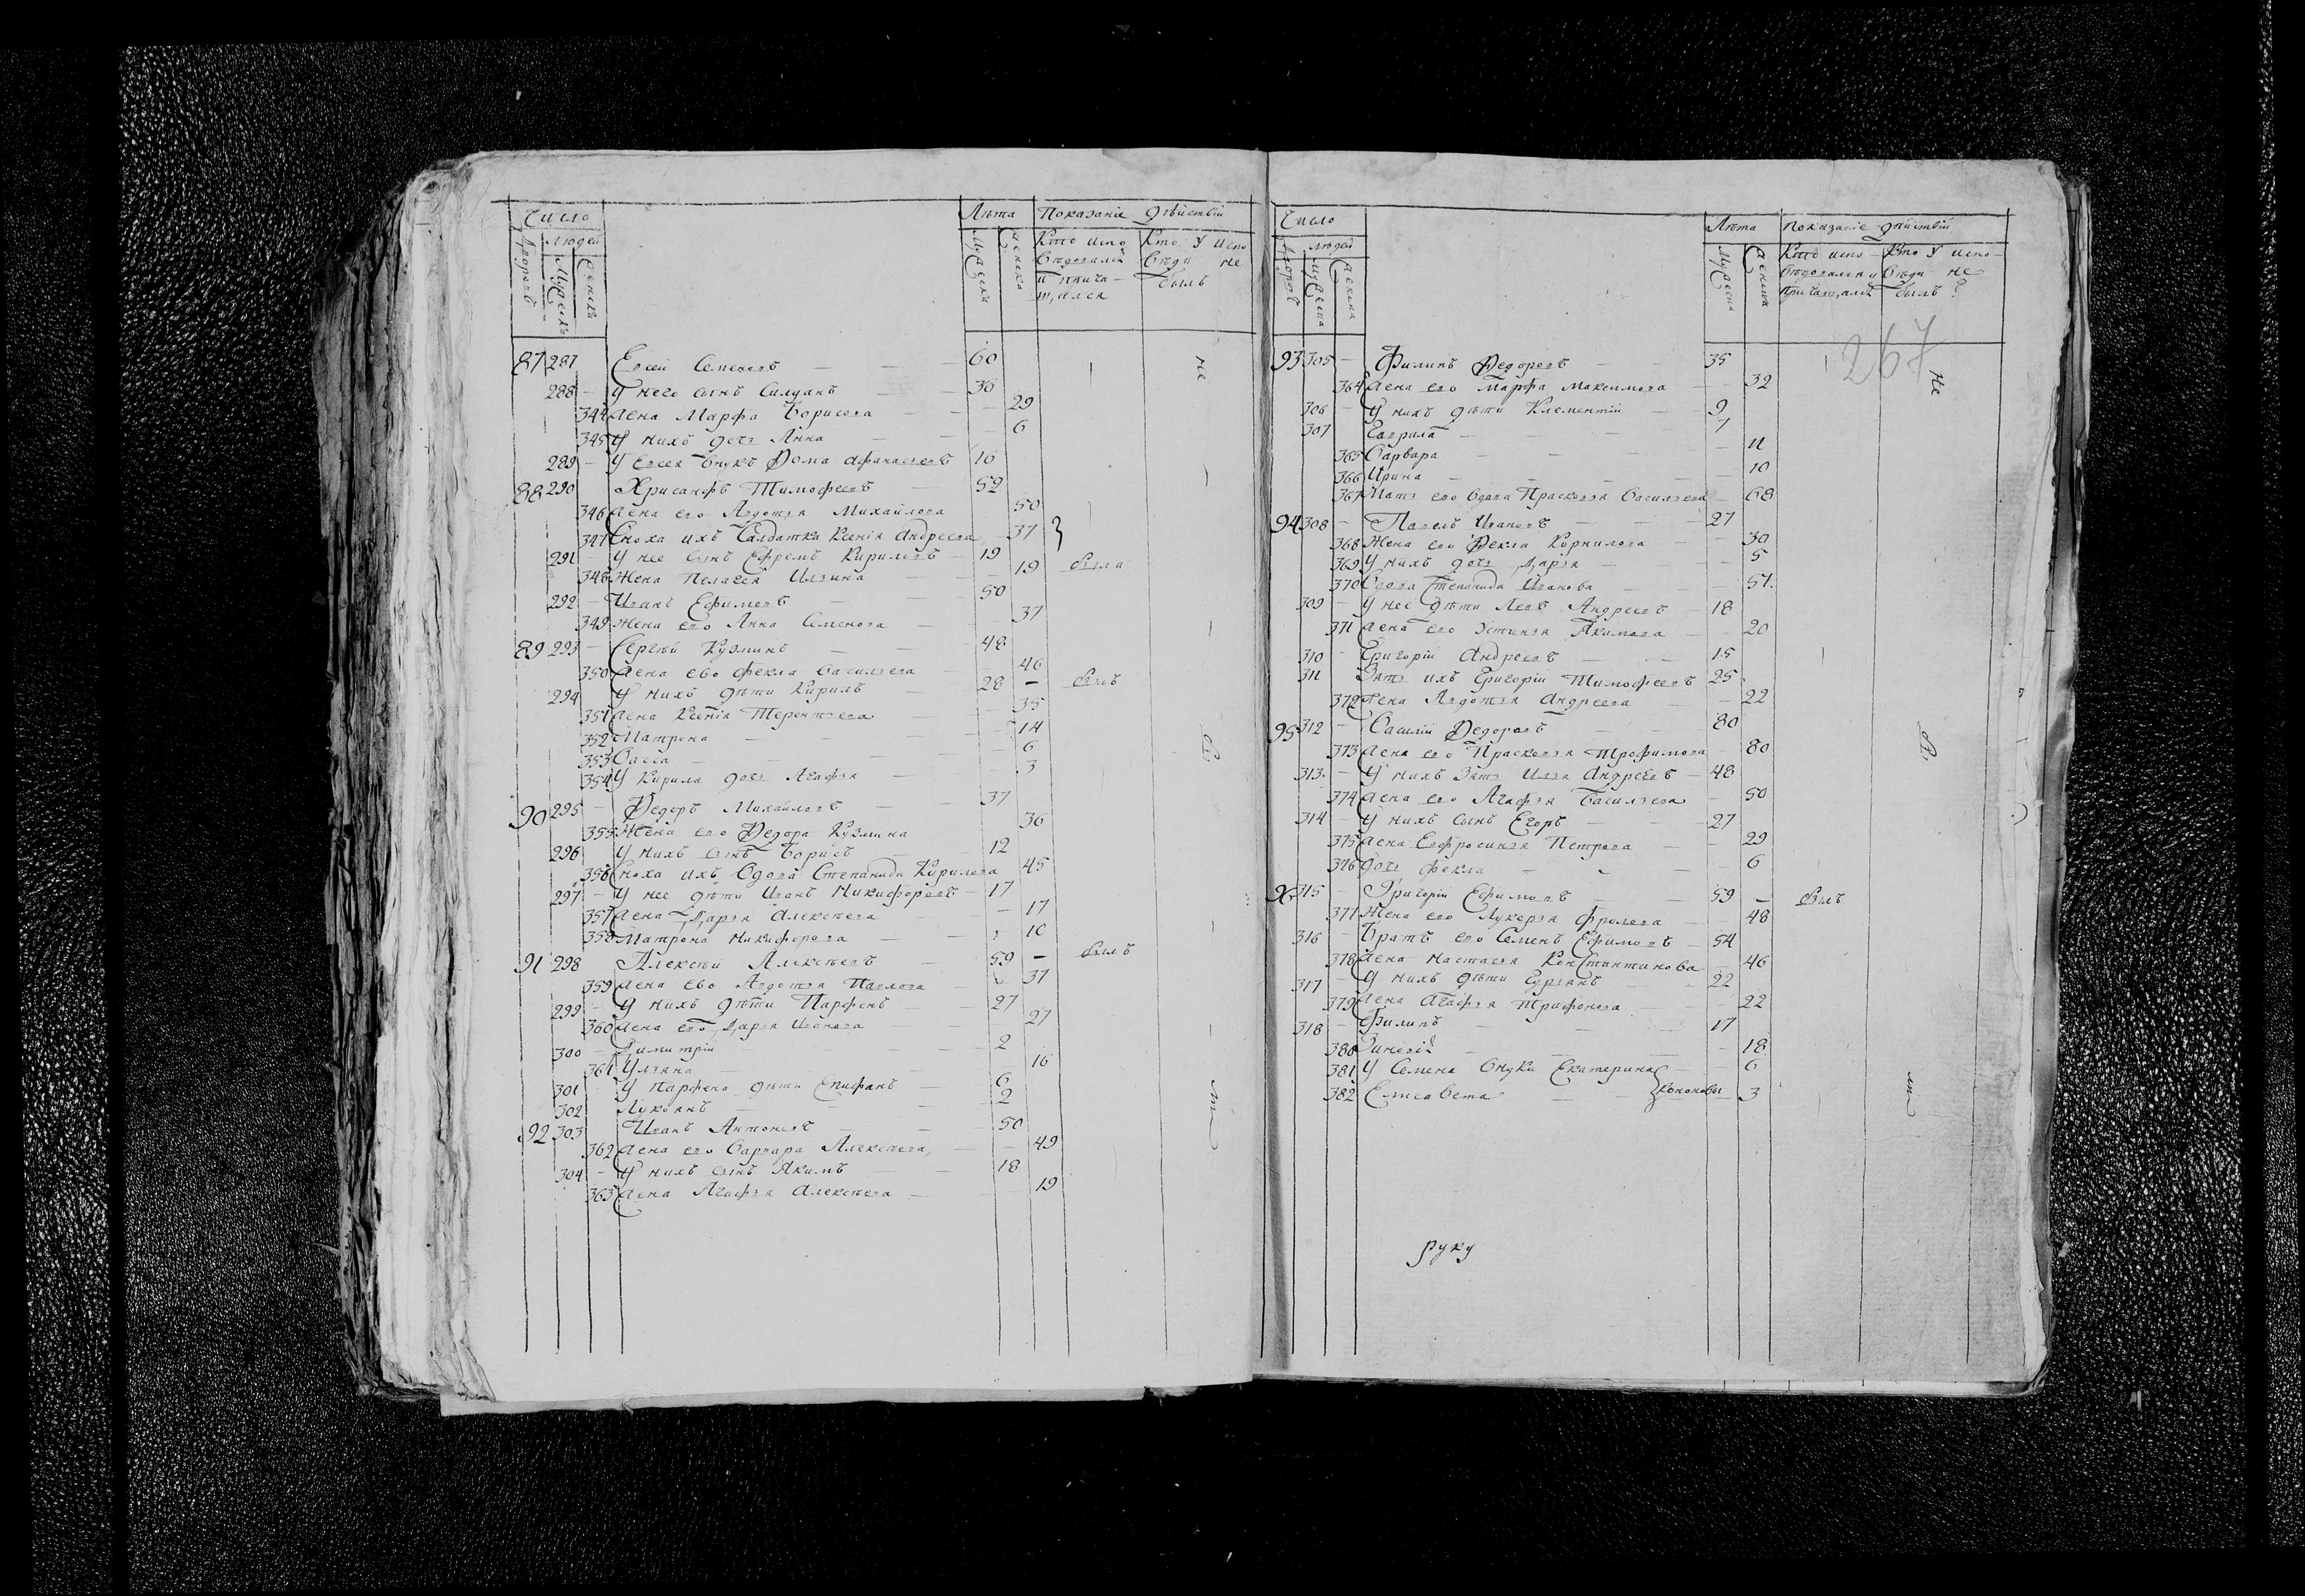 Число
Людей
Дворовъ
Мужеска
Женска
Лѣта
Мужеска
Женска
Показаніе дѣйствій
Кто испо
вѣдовался
и прича-
щался
Кто у испо
вѣди не
былъ
87 287 Евсей Семеновъ — — 60
288 — У него сынъ Силуанъ — 30
344 жена Марфа Борисова — — 29
345 У нихъ дочь Анна — — 6
289 — У Евсея внукъ Фома Афанасьевъ 16
88 290 Хрисанфъ Тимофеевъ — 52
346 жена его Авдотья Михайлова 50
347 Сноха ихъ Салдатка Ксенія Андреева 37
291 — У нее сынъ Ефремъ Кириловъ — 19
348 Жена Пелагея Ильина — 19 была
292 — Иванъ Ефимовъ — — 50
349 Жена его Анна Семенова — — 37
89 293 — Сергѣй Кузминъ — — 48
350 жена ево Фекла Васильева — 46
294 У нихъ дѣти Кирилъ — 28 — былъ
351 жена Ксенія Терентьева — 35
352 Матрона — — — 14
353 Васса — — — 6
354 У Кирила дочь Агафья — — 3
90 295 — Федоръ Михайловъ — — 37
355 Жена его Федора Кузмина — 36
296 У нихъ сынъ Борисъ — 12
356 Сноха ихъ вдова Степанида Кирилова 45
297 — У нее дѣти Иванъ Никифоровъ — 17
357 жена Дарья Алексѣева — — 17
358 Матрона Никифорова — — 10
91 298 Алексѣй Алексѣевъ — 59 — былъ
359 жена ево Авдотья Павлова — 37
299 — У нихъ дѣти Парфенъ — 27
360 жена его Дарья Иванова — — 27
300 — Димитрій — — 2
361 Ульяна — — 16
301 У Парфена дѣти Епифанъ — 6
302 Лукьянъ — — 2
92 303 Иванъ Антоновъ — — 50
362 жена его Варвара Алексѣева — 49
304 — У нихъ сынъ Якимъ — — 18
363 жена Агафья Алексѣева — 19
не
бы
ли
Число
Людей
Дворовъ
Мужеска
Женска
Лѣта
Мужеска
Женска
Показаніе дѣйствій
Кто испо-
вѣдовался и
причащался
Кто у испо-
вѣди не
былъ
267
93 305 — Филипъ Федоровъ — — 35
364 жена его Марфа Максимова — 32
306 — У нихъ дѣти Климентій — 9
307 Гаврила — — — 7
365 Варвара — — — 11
366 Ирина — — — 10
367 Мать его вдова Прасковья Васильева — 68
94 308 — Павелъ Ивановъ — — 27
368 Жена его Фекла Корнилова — — 30
369 У нихъ дочь Дарья — — 5
370 Вдова Степанида Иванова — 51
309 — У нее дѣти Левъ Андреевъ — 18
371 жена его Устинья Якимова — — 20
310 — Григорій Андреевъ — — 15
311 Зять ихъ Григорій Тимофеевъ 25
372 жена Авдотья Андреева — — 22
95 312 — Василій Федоровъ — 80
373 жена его Прасковья Трофимова — 80
313 — У нихъ зять Илья Андреевъ — 48
374 жена его Агафья Васильева — 50
314 — У нихъ сынъ Егоръ — — 27
375 жена Евфросинья Петрова — — 29
376 дочь Фекла — — — 6
315 — Григорій Ефимовъ — — 59 — былъ
377 Жена его Лукерья Фролова — — 48
316 — Братъ его Семенъ Ефимовъ — 54
378 жена Настасья Константинова — 46
317 — У нихъ дѣти — 22
379 жена Агафья Трифонова — 22
318 — Филипъ — — — 17
380 — 18
381 У Семена внуки Екатерина — 6
382 Елисавета — — Кононовы — 3
не
бы
ли
руку